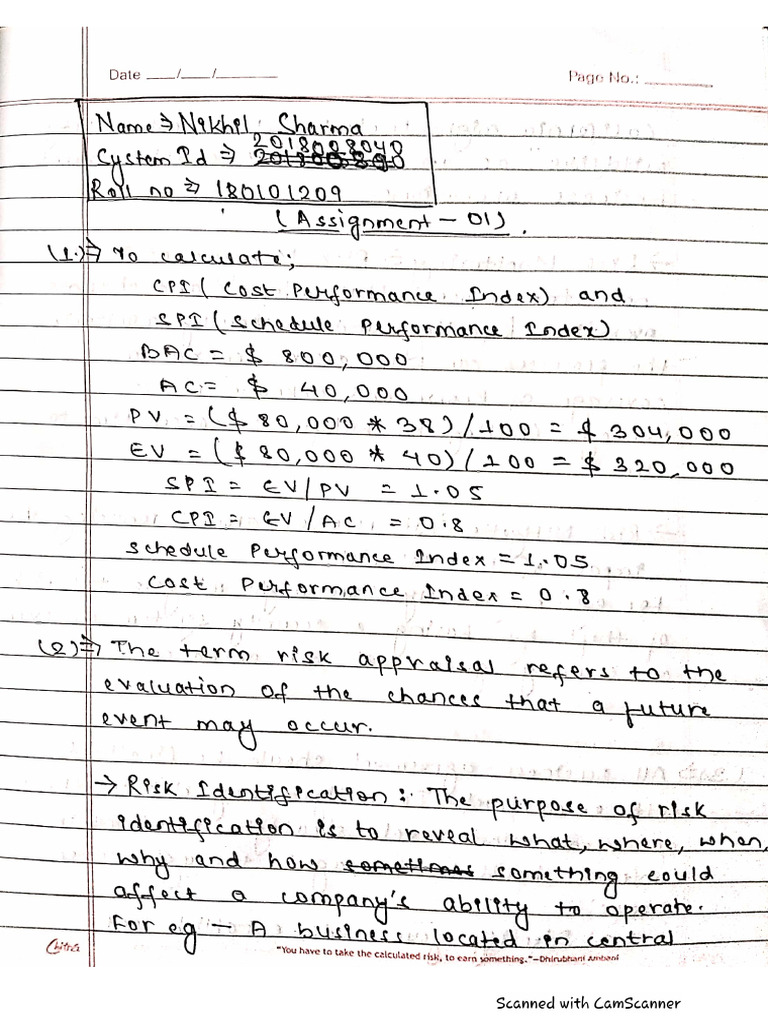 Date ___/___/______ Page No.: ________
Name ⇒ Nikhil Sharma
2018008040
Cystem Id ⇒
Roll no ⇒ 180101209
(Assignment - 01).
(1.) ⇒ To calculate;
CPI ( Cost Performance Index) and
SPI ( Schedule Performance Index)
BAC = $ 800,000
AC = $ 40,000
PV = ($ 80,000 * 38) / 100 = $ 304,000
EV = ($ 80,000 * 40) / 100 = $ 320,000
SPI = EV/PV = 1.05
CPI = EV/AC = 0.8
Schedule Performance Index = 1.05
Cost Performance Index = 0.8
(2) ⇒ The term risk appraisal refers to the
evaluation of the chances that a future
event may occur.
→ Risk Identification : The purpose of risk
identification is to reveal what, where, when,
why and how sometimes something could
affect a company's ability to operate.
For eg - A business located in central
Chitra "You have to take the calculated risk, to earn something."–Dhirubhani Ambani
Scanned with CamScanner